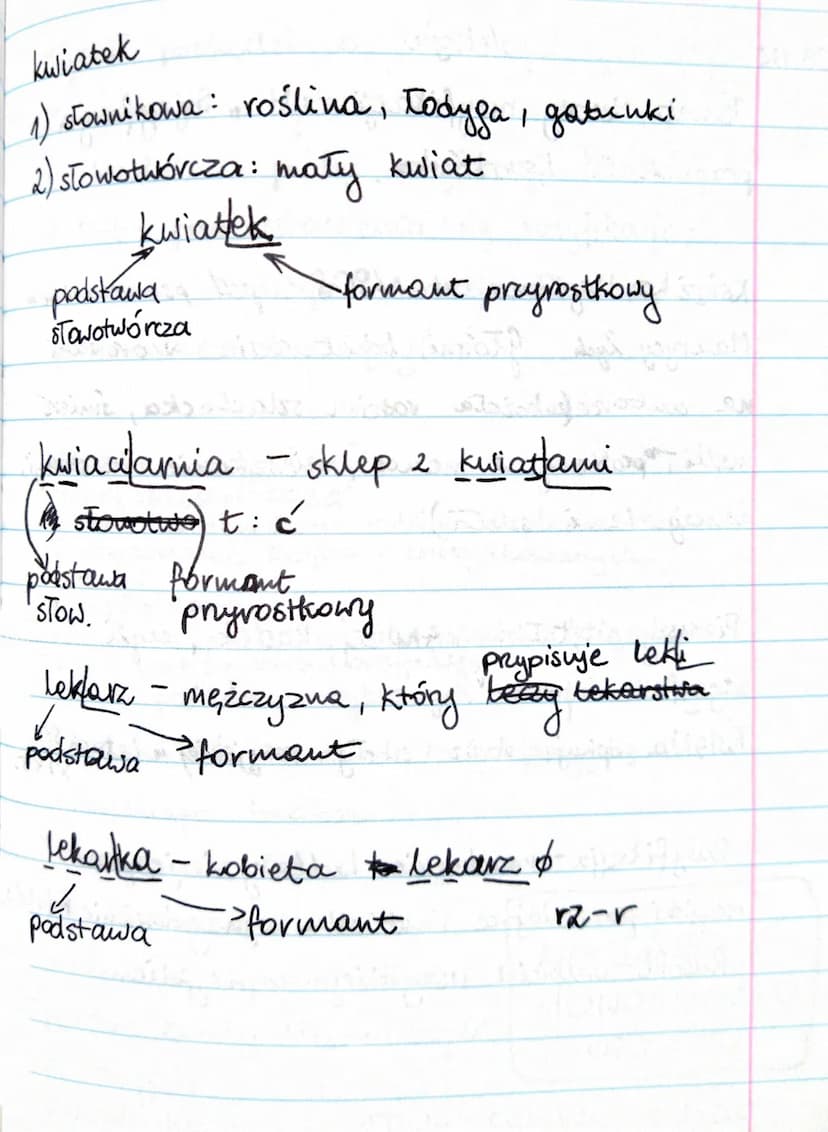 kwiatek
1) słownikowa: roślina, łodyga, gatunki
2) słowotwórcza: mały kwiat
kwiat|ek
podstawa słowotwórcza
formant przyrostkowy
kwiaci|arnia – sklep z kwiat|ami
słowotwo t : ć
podstawa słow.
formant przyrostkowy
przypisuje leki
lek|arz – mężczyzna, który leczy lekarstwa
podstawa formant
lekar|ka – kobieta lekarz ϕ
podstawa formant rz-r